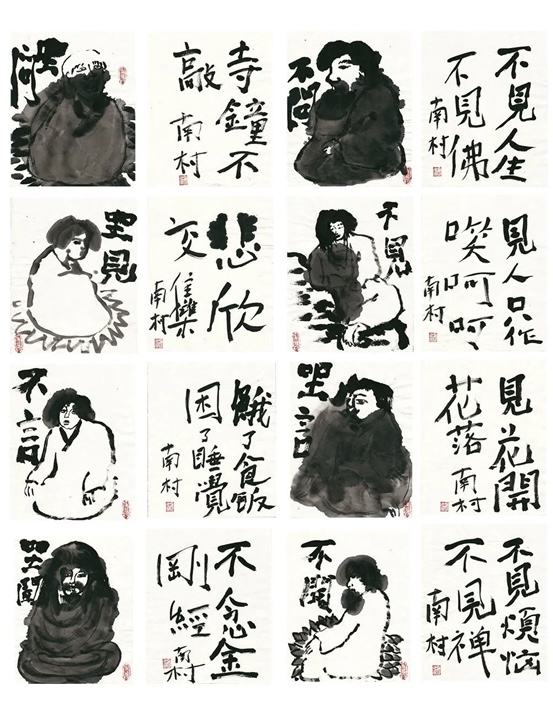 空問
寺鐘不
敲
南村
不問
不見人生
不見佛
南村
空見
悲欣
交集
南村
不見
見人只作
咲呵呵
南村
不言
餓了食飯
困了睡覺
南村
空言
見花開
花落
南村
空聞
不念金
剛經
南村
不聞
不見煩惱
不見禪
南村